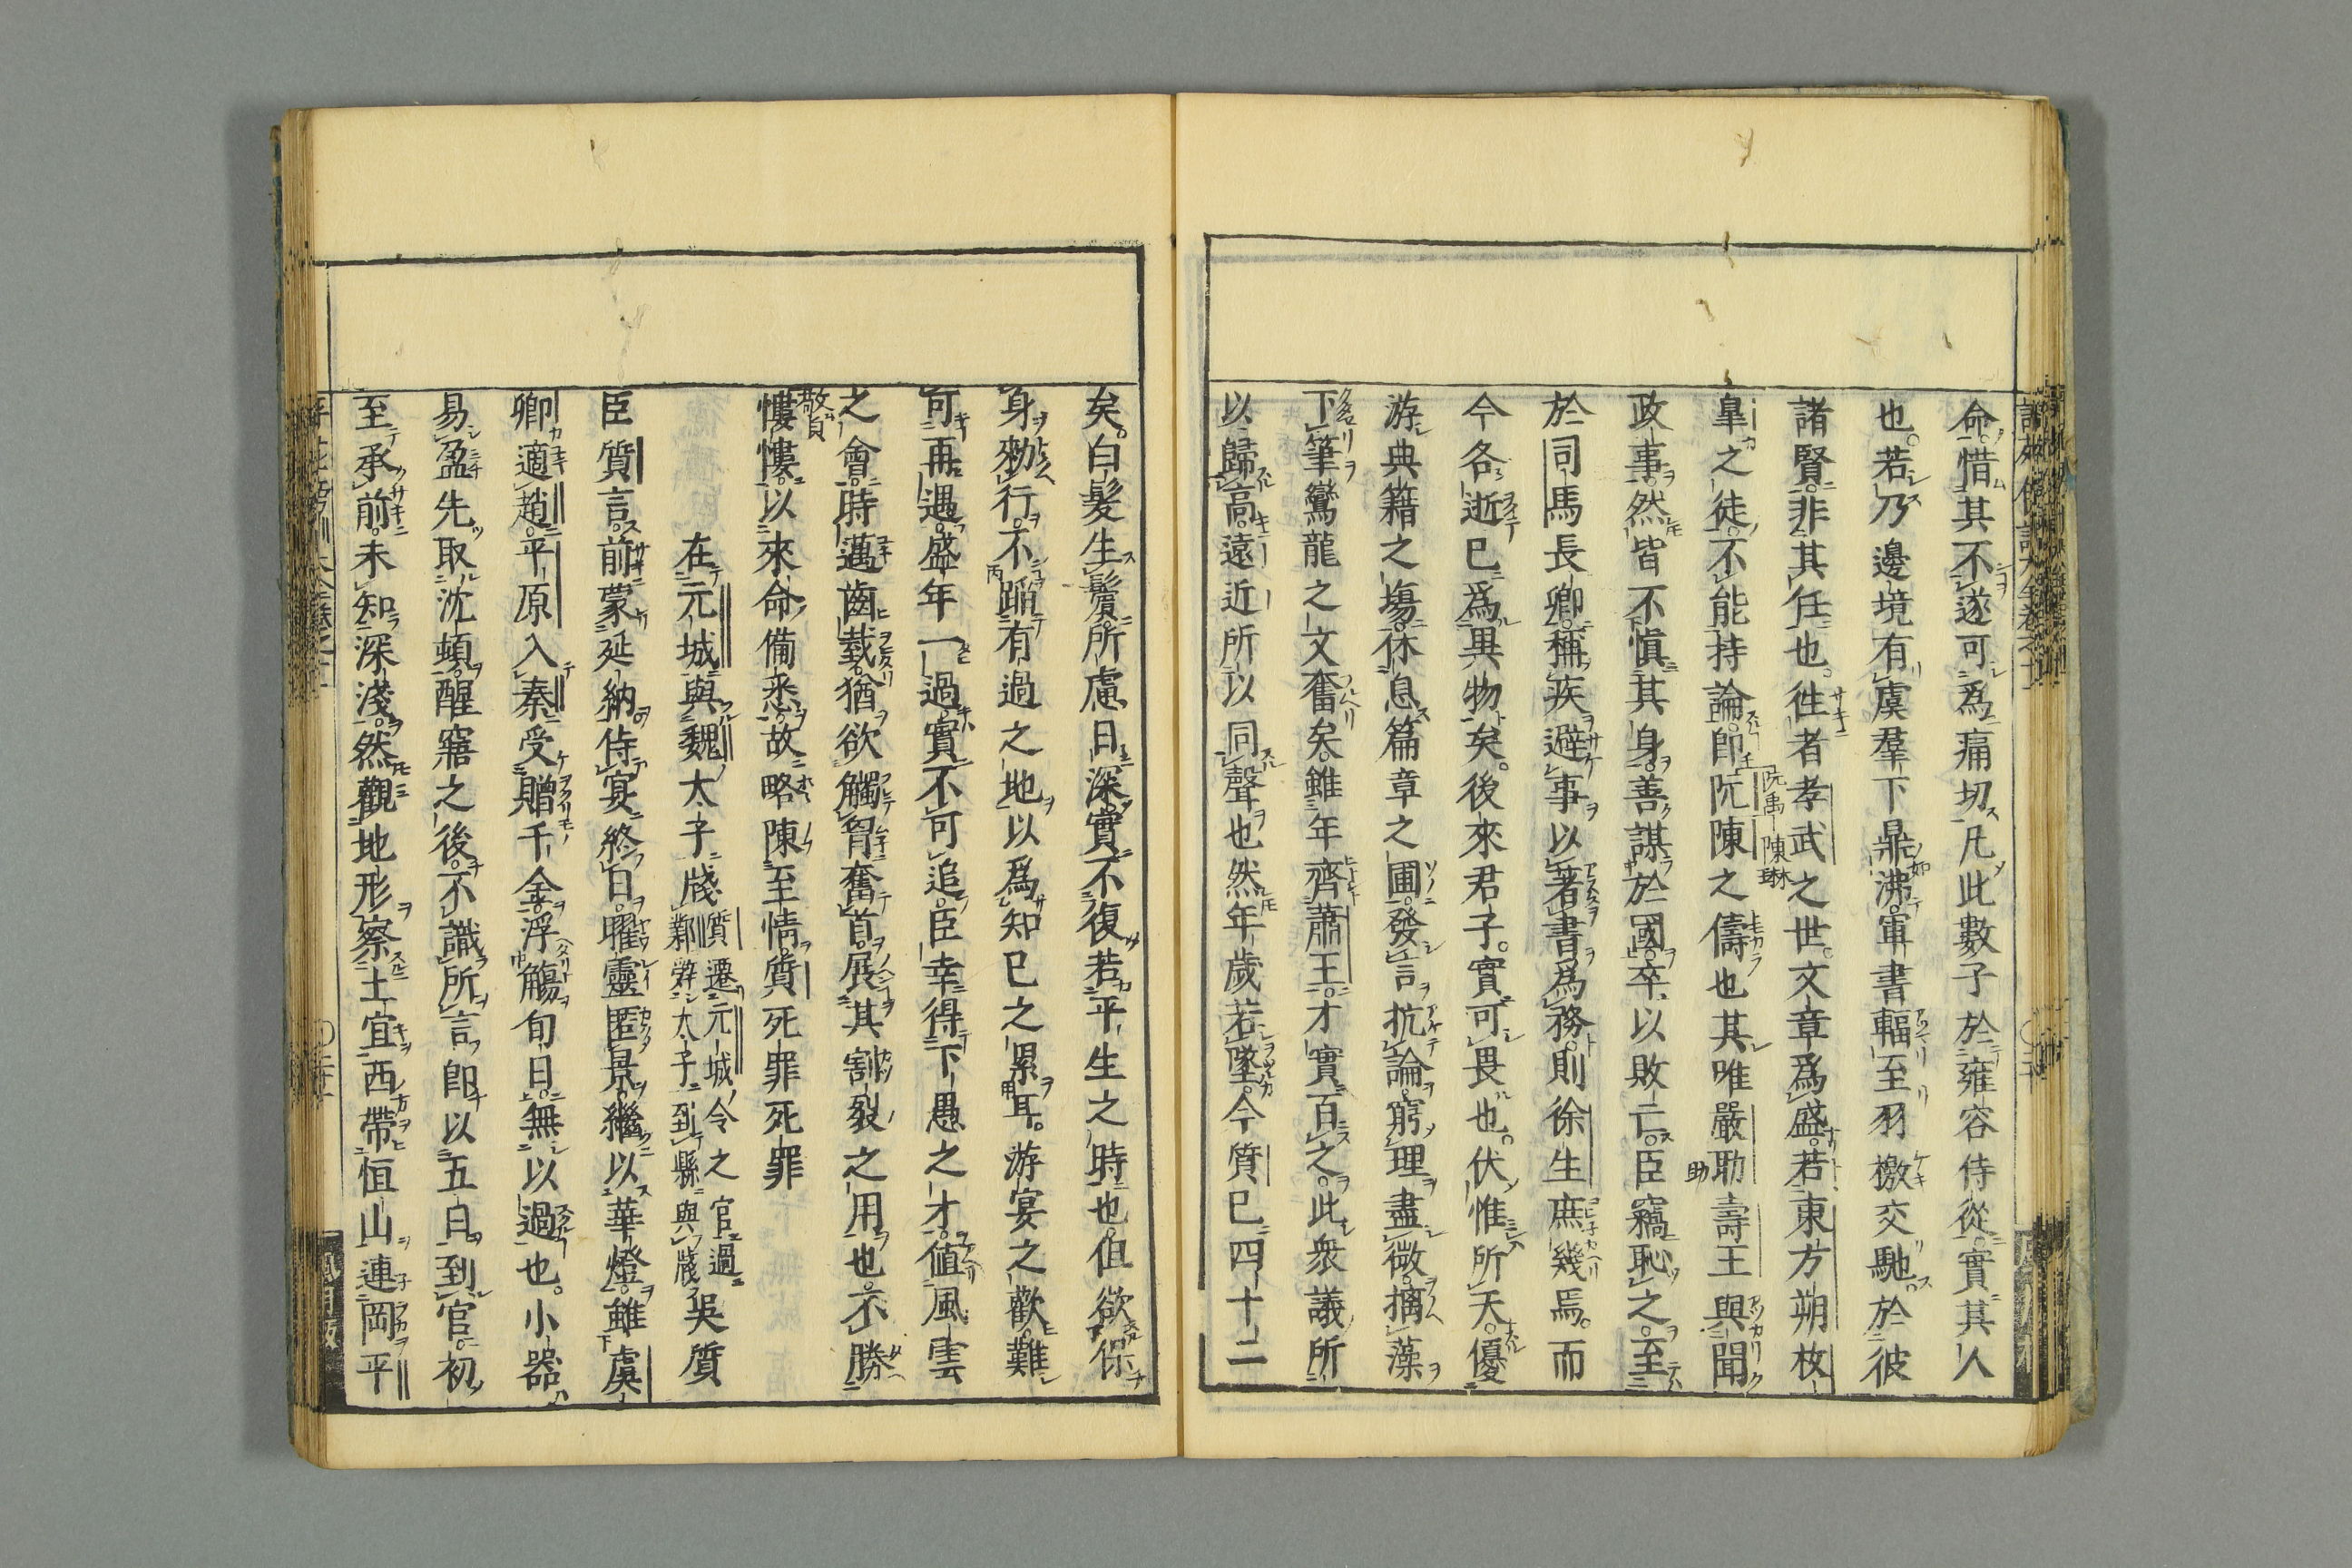 命惜其不遂可爲痛切凡此數子於雍容侍從實其人
也若乃邊境有虞羣下鼎沸軍書輻至羽檄交馳於彼
諸賢非其任也徃者孝武之世文章爲盛若東方朔枚
皐之徒不能持論卽阮陳之儔也其唯嚴助壽王與聞
政事然皆不愼其身善謀於國卒以敗亡臣竊恥之至
於司馬長卿稱疾避事以著書爲務則徐生庶幾焉而
今各逝已爲異物矣後來君子實可畏也伏惟所天優
游典籍之塲休息篇章之囿發言抗論窮理盡微摛藻
下筆鸞龍之文奮矣雖年齊蕭王才實百之此衆議所
以歸高遠近所以同聲也然年歲若墜今質已四十二
矣白髮生鬢所慮日深實不復若平生之時也但欲保
身勑行不蹈有過之地以爲知已之累耳游宴之歡難
可再遇盛年一過實不可追臣幸得下愚之才値風雲
之會時邁齒臷猶欲觸胷奮首展其割裂之用也不勝
慺慺以來命備悉故略陳至情質死罪死罪
在元城與魏太子牋
質遷元城令之官過
鄴辤太子到縣與牋
吳質
臣質言前蒙延納侍宴終日曜靈匿景繼以華燈雖虞
卿適趙平原入秦受贈千金浮觴旬日無以過也小器
易盈先取沈頓醒寤之後不識所言卽以五日到官初
至承前未知深淺然觀地形察土宜西帶恒山連岡平